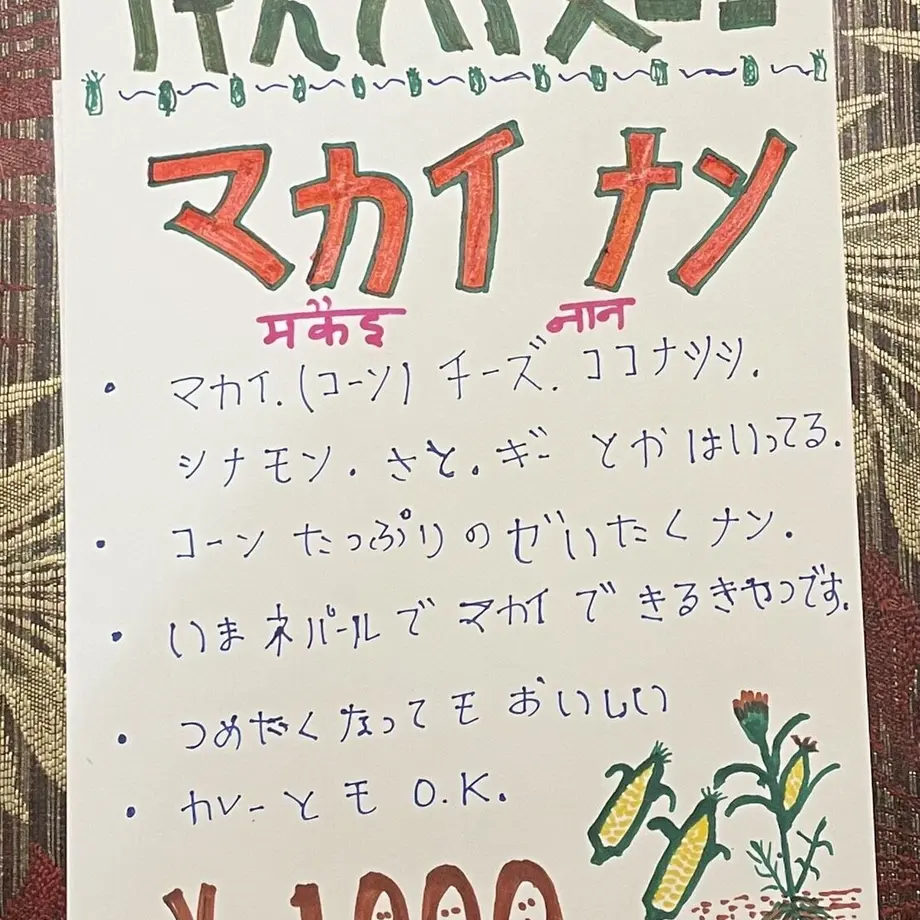 マカイ ナン
मकैइ नान
・マカイ.(コーン) チーズ. ココナツツ.
シナモン. さと. ギー とか はいってる.
・コーン たっぷりの ぜいたくナン.
・いま ネパールで マカイ で きるきせつです.
・つめたくなってモ おいしい
・カレーとモ O.K.
¥1000